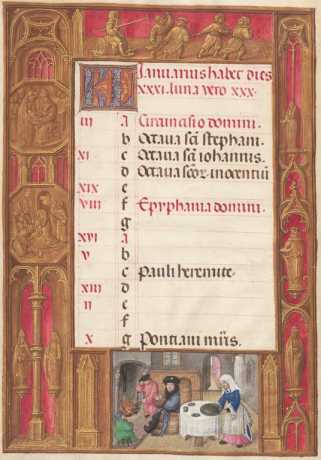 KL Januarius habet dies
XXXI. luna vero XXX.
III A Circuncisio domini.
b Octava scī stephani.
XI c Octava scī iohannis.
d Octava scōr inocentiū
XIX e
VIII f Epyphania domini.
g
XVI A
V b
c Pauli heremite.
XIII d
II e
f
X g Pontiani mr̄is.